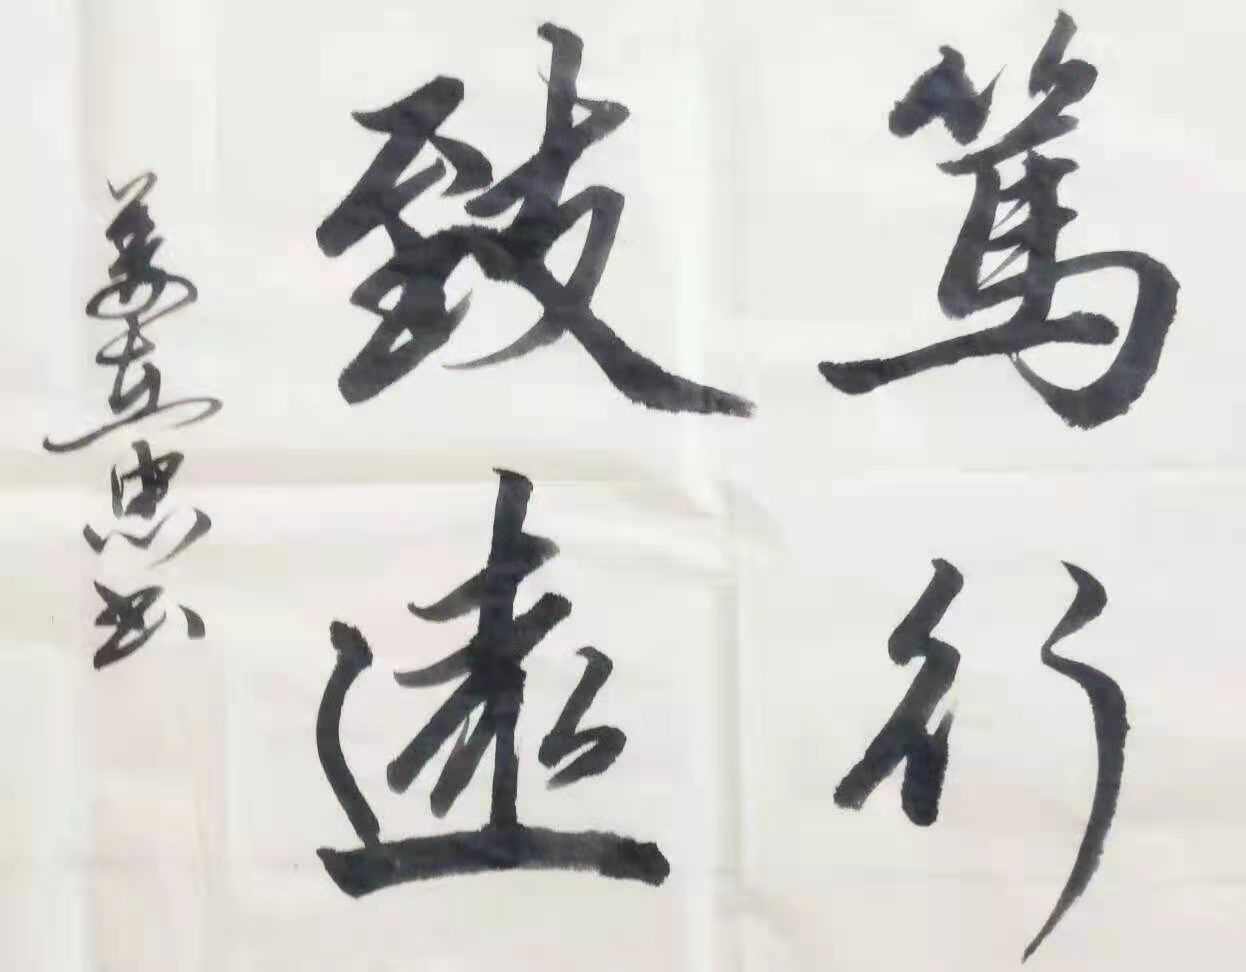 篤行
致遠
姜立忠书